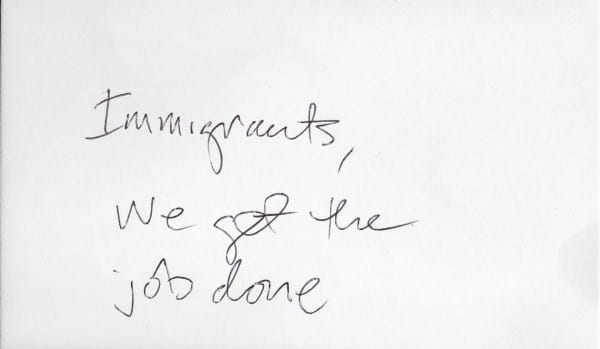 Immigrants,
We get the
job done